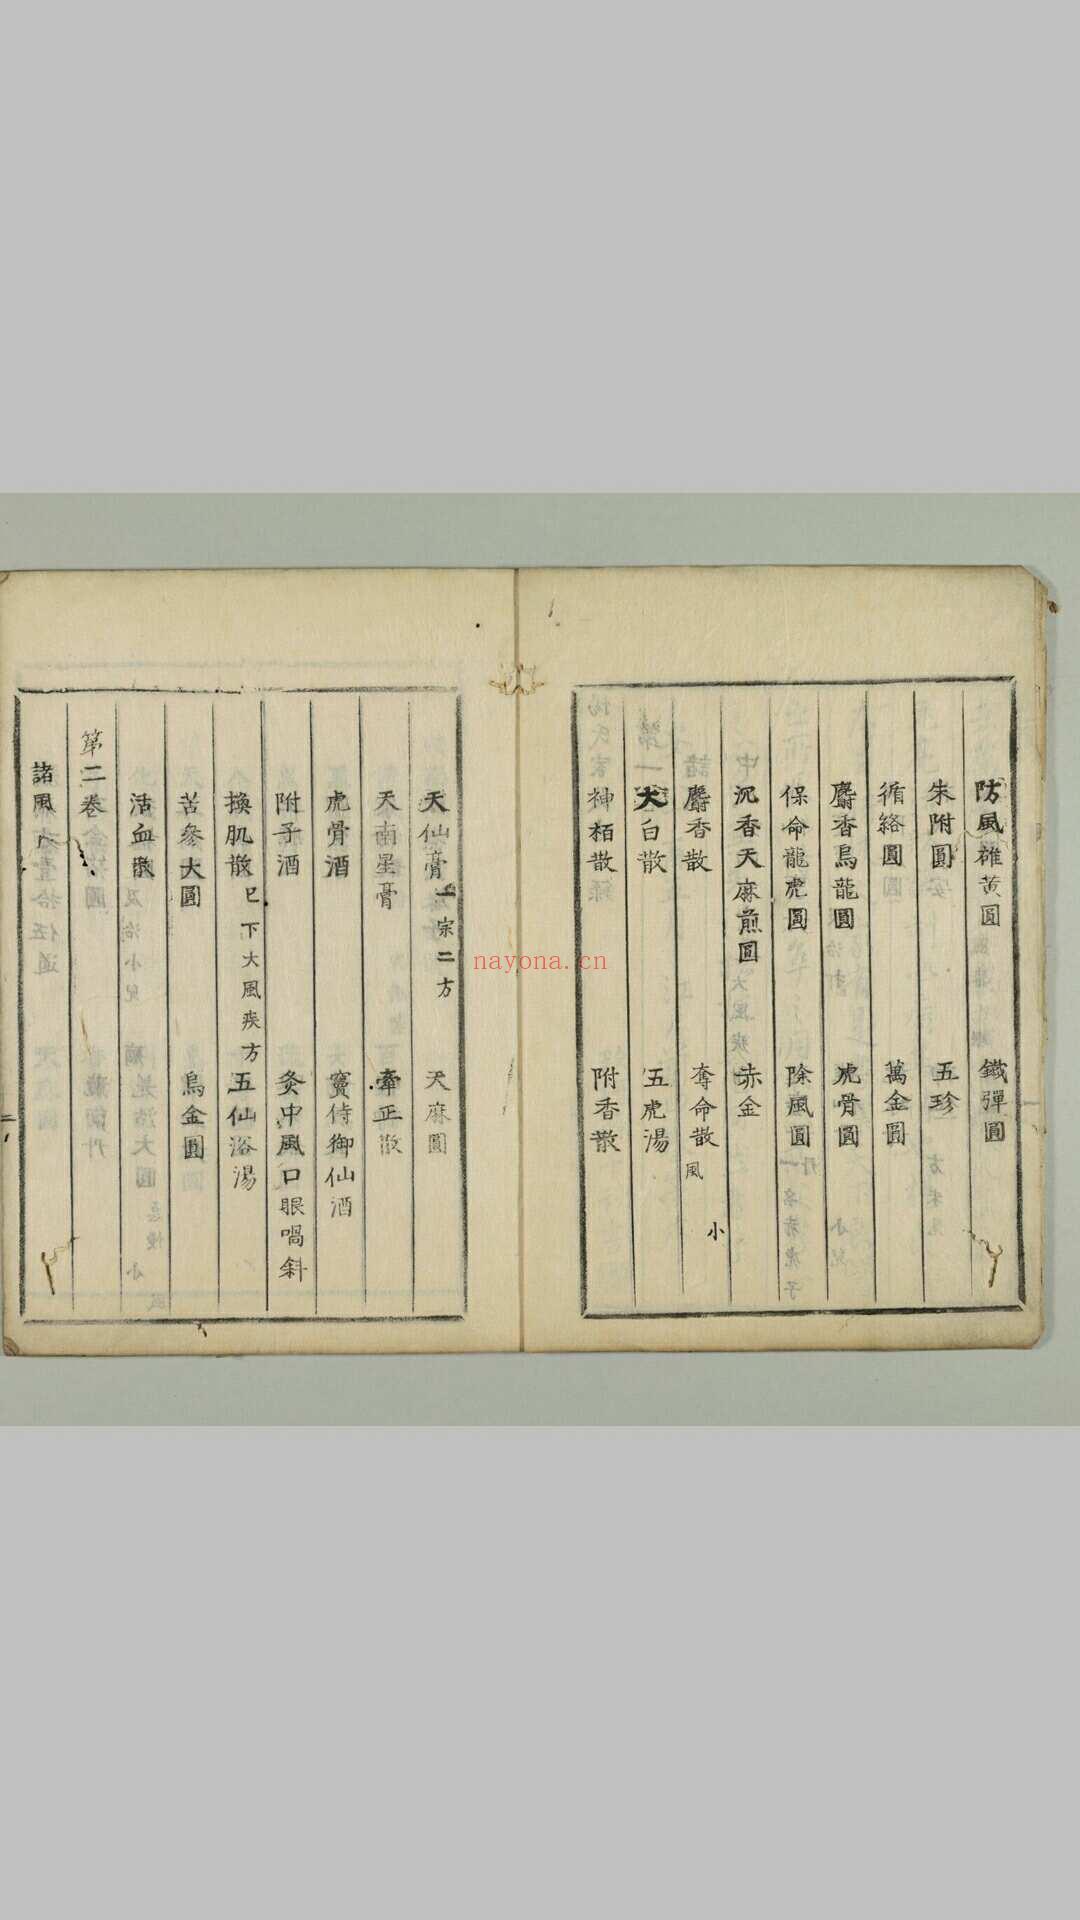 防風雄黃圓 鐵彈圓
朱附圓 五珍
循絡圓 萬金圓
麝香烏龍圓 虎骨圓
保命龍虎圓 除風圓
沉香天麻煎圓 赤金
麝香散 奪命散 風 小
大白散 五虎湯
神栢散 附香散
天仙膏 一宗二方 天麻圓
天南星膏 牽正散
虎骨酒 竇侍御仙酒
附子酒 灸中風口眼喎斜
換肌散 已下大風疾方 五仙浴湯
苦參大圓 烏金圓
活血散
第二卷
諸風
二
nayona.cn